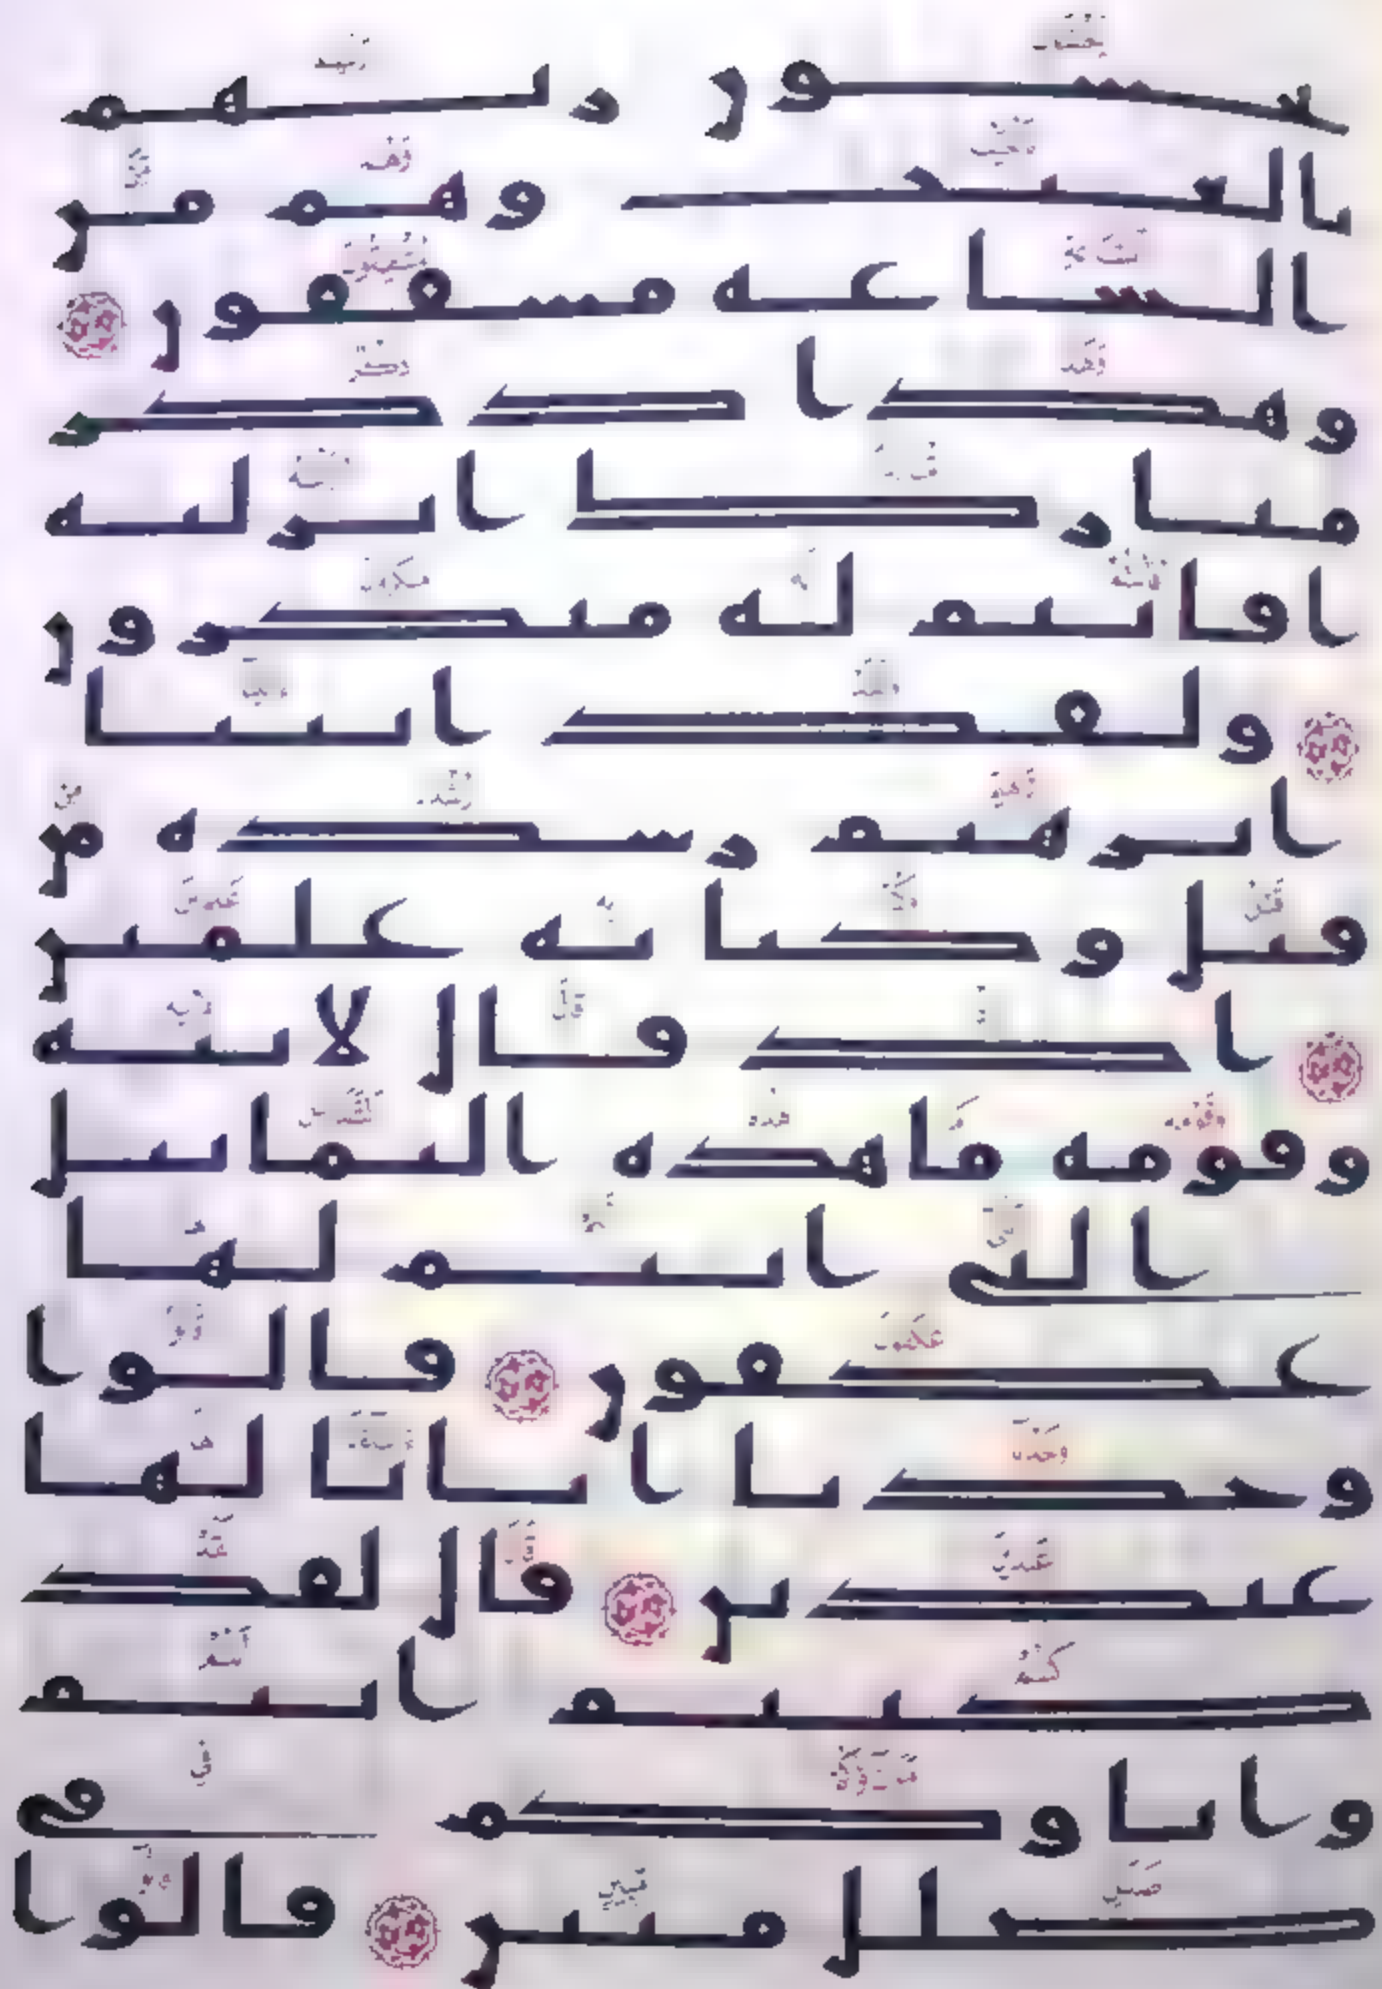 يخشون ربهم
بالغيب وهم من
الساعة مشفقون
وهذا ذكر
مبارك انزلنه
افانتم له منكرون
ولقد اتينا
ابرهيم رشده من
قبل وكنا به علمين
اذ قال لابيه
وقومه ما هذه التماثيل
التي انتم لها
عكفون قالوا
وجدنا اباانا لها
عبدين قال لقد
كنتم انتم
واباوكم في
ضلل مبين قالوا